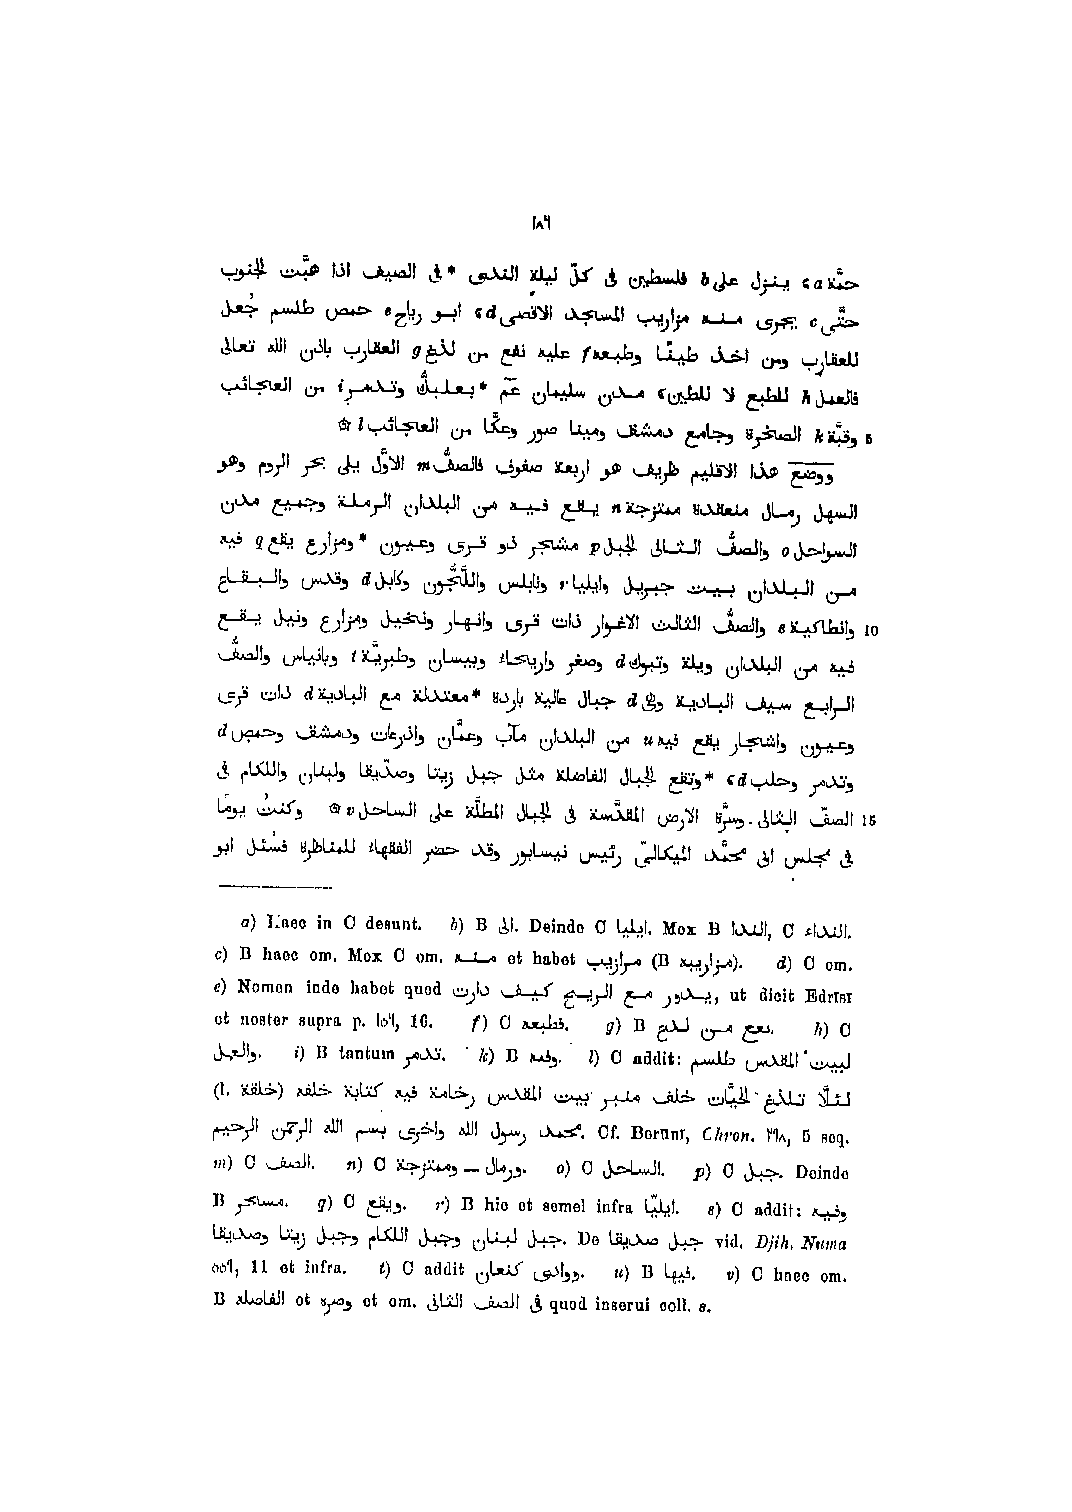 ١٨٦
حمّة a، ينزل على b فلسطين فى كلّ ليلة الندى * فى الصيف اذا هبّت الجنوب
حتّى c يجرى منه مزاريب المسجد الاقصى d، ابو رياح e حمص طلسم جُعل
للعقارب ومن اخذ طينًا وطبعه f عليه نفع من لذغ g العقارب باذن الله تعالى
فالعمل h للطبع لا للطين، مدن سليمان عمّ * بعلبكُّ وتدمر i، من العجائب
5 وقبّة k الصخرة وجامع دمشق ومينا صور وعكّا من العجائب l ۞
ووضع هذا الاقليم ظريف هو اربعة صفوف فالصفُّ m الاوَّل يلى بحر الروم وهو
السهل رمال منعقدة ممتزجة n يقع فيه من البلدان الرملة وجميع مدن
السواحل o والصفُّ الثانى الجبل p مشجر ذو قرى وعيون * ومزارع يقع q فيه
من البلدان بيت جبريل وايليا r ونابلس واللَّجُّون وكابل d وقدس والبقاع
10 وانطاكية s والصفُّ الثالث الاغوار ذات قرى وانهار ونخيل ومزارع ونيل يقع
فيه من البلدان ويلة وتبوك d وصغر واريحاء وبيسان وطبريّة t وبانياس والصفُّ
الرابع سيف البادية وهى d جبال عالية باردة * معتدلة مع البادية d ذات قرى
وعيون واشجار يقع فيه u من البلدان مآب وعمَّان واذرعات ودمشق وحمص d
وتدمر وحلب d، * وتقع الجبال الفاضلة مثل جبل زيتا وصدّيقا ولبنان واللكام فى
15 الصفّ الثانى. وسرّة الارض المقدَّسة فى الجبال المطلّة على الساحل v ۞ وكنتُ يومًا
فى مجلس ابى محمَّد الميكالىّ رئيس نيسابور وقد حضر الفقهاء للمناظرة فسُئل ابو
a) Haec in C desunt. b) B الى. Deinde C ايليا. Mox B الندا, C النداء.
c) B haec om. Mox C om. منه et habet مرازيب (B مزاريبه). d) C om.
e) Nomen inde habet quod يدور مع الريح كيف دارت, ut dicit Edrīsī
et noster supra p. ١٥٦, 16. f) C فطبعه. g) B نفع من لذع. h) C
والعمل. i) B tantum تدمر. k) B وفيه. l) C addit: لبيت المقدس طلسم
لئلّا تلذغ الحيّات خلف منبر بيت المقدس رخامة فيه كتابة خلفه (l. خلقة)
محمد رسول الله واخرى بسم الله الرحمن الرحيم. Cf. Bērūnī, Chron. ٢٦٨, 5 seq.
m) C الصف. n) C ورمال — وممتزجة. o) C الساحل. p) C جبل. Deinde
B مساكر. q) C ويقع. r) B hic et semel infra ايليّا. s) C addit: وفيه
جبل لبنان وجبل اللكام وجبل زيتا وصديقا. De جبل صديقا vid. Djih. Numa
٥٥٦, 11 et infra. t) C addit ووادى كنعان. u) B فيها. v) C haec om.
B الفاصله et وصره et om. فى الصف الثانى quod inserui coll. s.